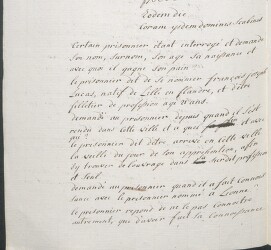 Eodem die
Coram ijsdem dominis Scabinis
Certain prisonnier etant interrogé et demandé
son nom, surnom, son age sa naissance et
avec quoi il gagne son pain
le prisonnier dit de se nommer françois joseph
Lucas, natif de Lille en flandre, et detre
filletier de profession agé ans.
demandé au prisonnier depuis quand il s'est
rendu dans cette ville et a quel et avec
qui
le prisonnier dit detre arrivé en cette ville
la veille du jour de son apprehension, afin
dy trouver de louvrage dans sa susdit profession
et seul.
demandé au prisonnier quand il a fait connois
sance avec le prisonnier nommé a
le prisonnier repond de ne le pas connoitre
autrement, que davoir fait la connoissance